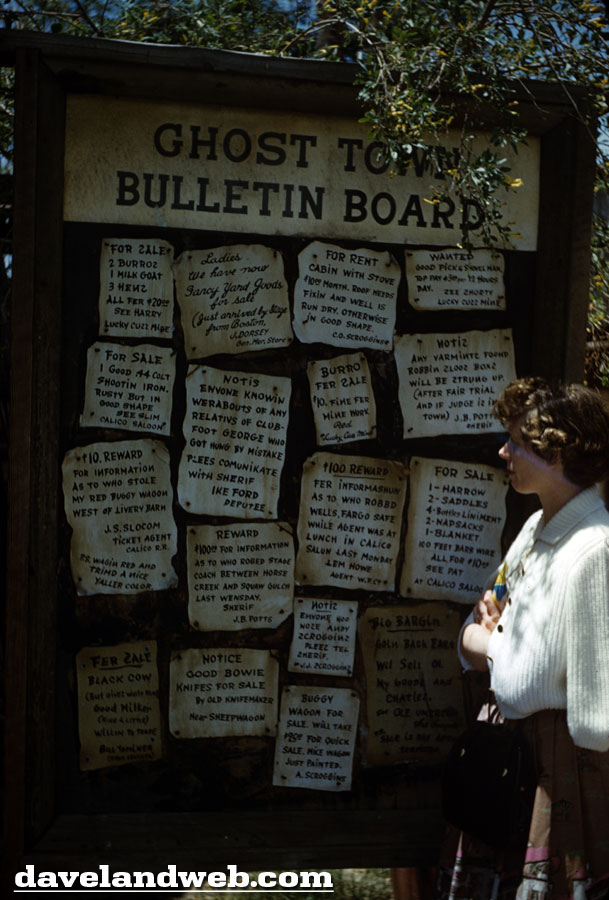 GHOST TOWN
BULLETIN BOARD
FOR ZALE
2 BURROZ
1 MILK GOAT
3 HENZ
ALL FER $20.00
SEE HARRY
LUCKY CUZZ MINE
Ladies
We have now
Fancy Yard Goods
for sale
(Just arrived by Stage
from Boston)
J. DORSEY
Gen. Mer. Store
FOR RENT
CABIN WITH STOVE
MONTH. ROOF NEEDS
FIXIN AND WELL IS
RUN DRY. OTHERWISE
IN GOOD SHAPE.
C.O. SCROGGINS
WANTED
GOOD PICK & SHOVEL MAN
TOP PAY 12 HOURS
DAY. SEE SHORTY
LUCKY CUZZ MINE
FOR SALE
1 GOOD 44 COLT
SHOOTIN IRON.
RUSTY BUT IN
GOOD SHAPE
SEE SLIM
CALICO SALOON
NOTIS
ENYONE KNOWIN
WERABOUTS OF ANY
RELATIVS OF CLUB-
FOOT GEORGE WHO
GOT HUNG BY MISTAKE
PLEES COMUNIKATE
WITH SHERIF
IKE FORD
DEPUTEE
BURRO
FER ZALE
$10. FINE FER
MINE WORK
Lucky Cuz Mine
NOTIZ
ANY VARMINTZ FOUND
ROBBIN ZLOOZ BOXZ
WILL BE ZTRUNG UP.
(AFTER FAIR TRIAL
AND IF JUDGE IZ IN
TOWN) J.B. POTTS
SHERIF
$10. REWARD
FOR INFORMATION
AS TO WHO STOLE
MY RED BUGGY WAGON
WEST OF LIVERY BARN
J.S. SLOCUM
TICKET AGENT
CALICO R.R.
P.S. WAGIN RED AND
TRIMD A NICE
YALLER COLOR
$100 REWARD
FER INFORMASHUN
AS TO WHO ROBBD
WELLS, FARGO SAFE
WHILE AGENT WAS AT
LUNCH IN CALICO
SALUN LAST MONDAY
LEM HOWE
AGENT W.F. CO
FOR SALE
1-HARROW
2-SADDLES
4-Bottles LINIMENT
2-NADSACKS
1-BLANKET
100 FEET BARB WIRE
ALL FOR $10.00
SEE PAT
AT CALICO SALOO
REWARD
$100.00 FOR INFORMATION
AS TO WHO ROBED STAGE
COACH BETWEEN HORSE
CREEK AND SQUAW GULCH
LAST WENSDAY.
SHERIF
J.B. POTTS
NOTIZ
ENYONE HOO
NOZE ANDY
ZCROGGINZ
PLEEZ TEL
SHERIF.
J.J. ZCROGGINZ
BIG BARGIN
FER ZALE
BLACK COW
Good Milker
WILLIN TO TRADE
NOTICE
GOOD BOWIE
KNIFES FOR SALE
BY OLD KNIFEMAKER
Near SHEEPWAGON
BUGGY
WAGOM FOR
SALE. WILL TAKE
FOR QUICK
SALE. NICE WAGON
JUST PAINTED.
A. SCROGGINS
davelandweb.com